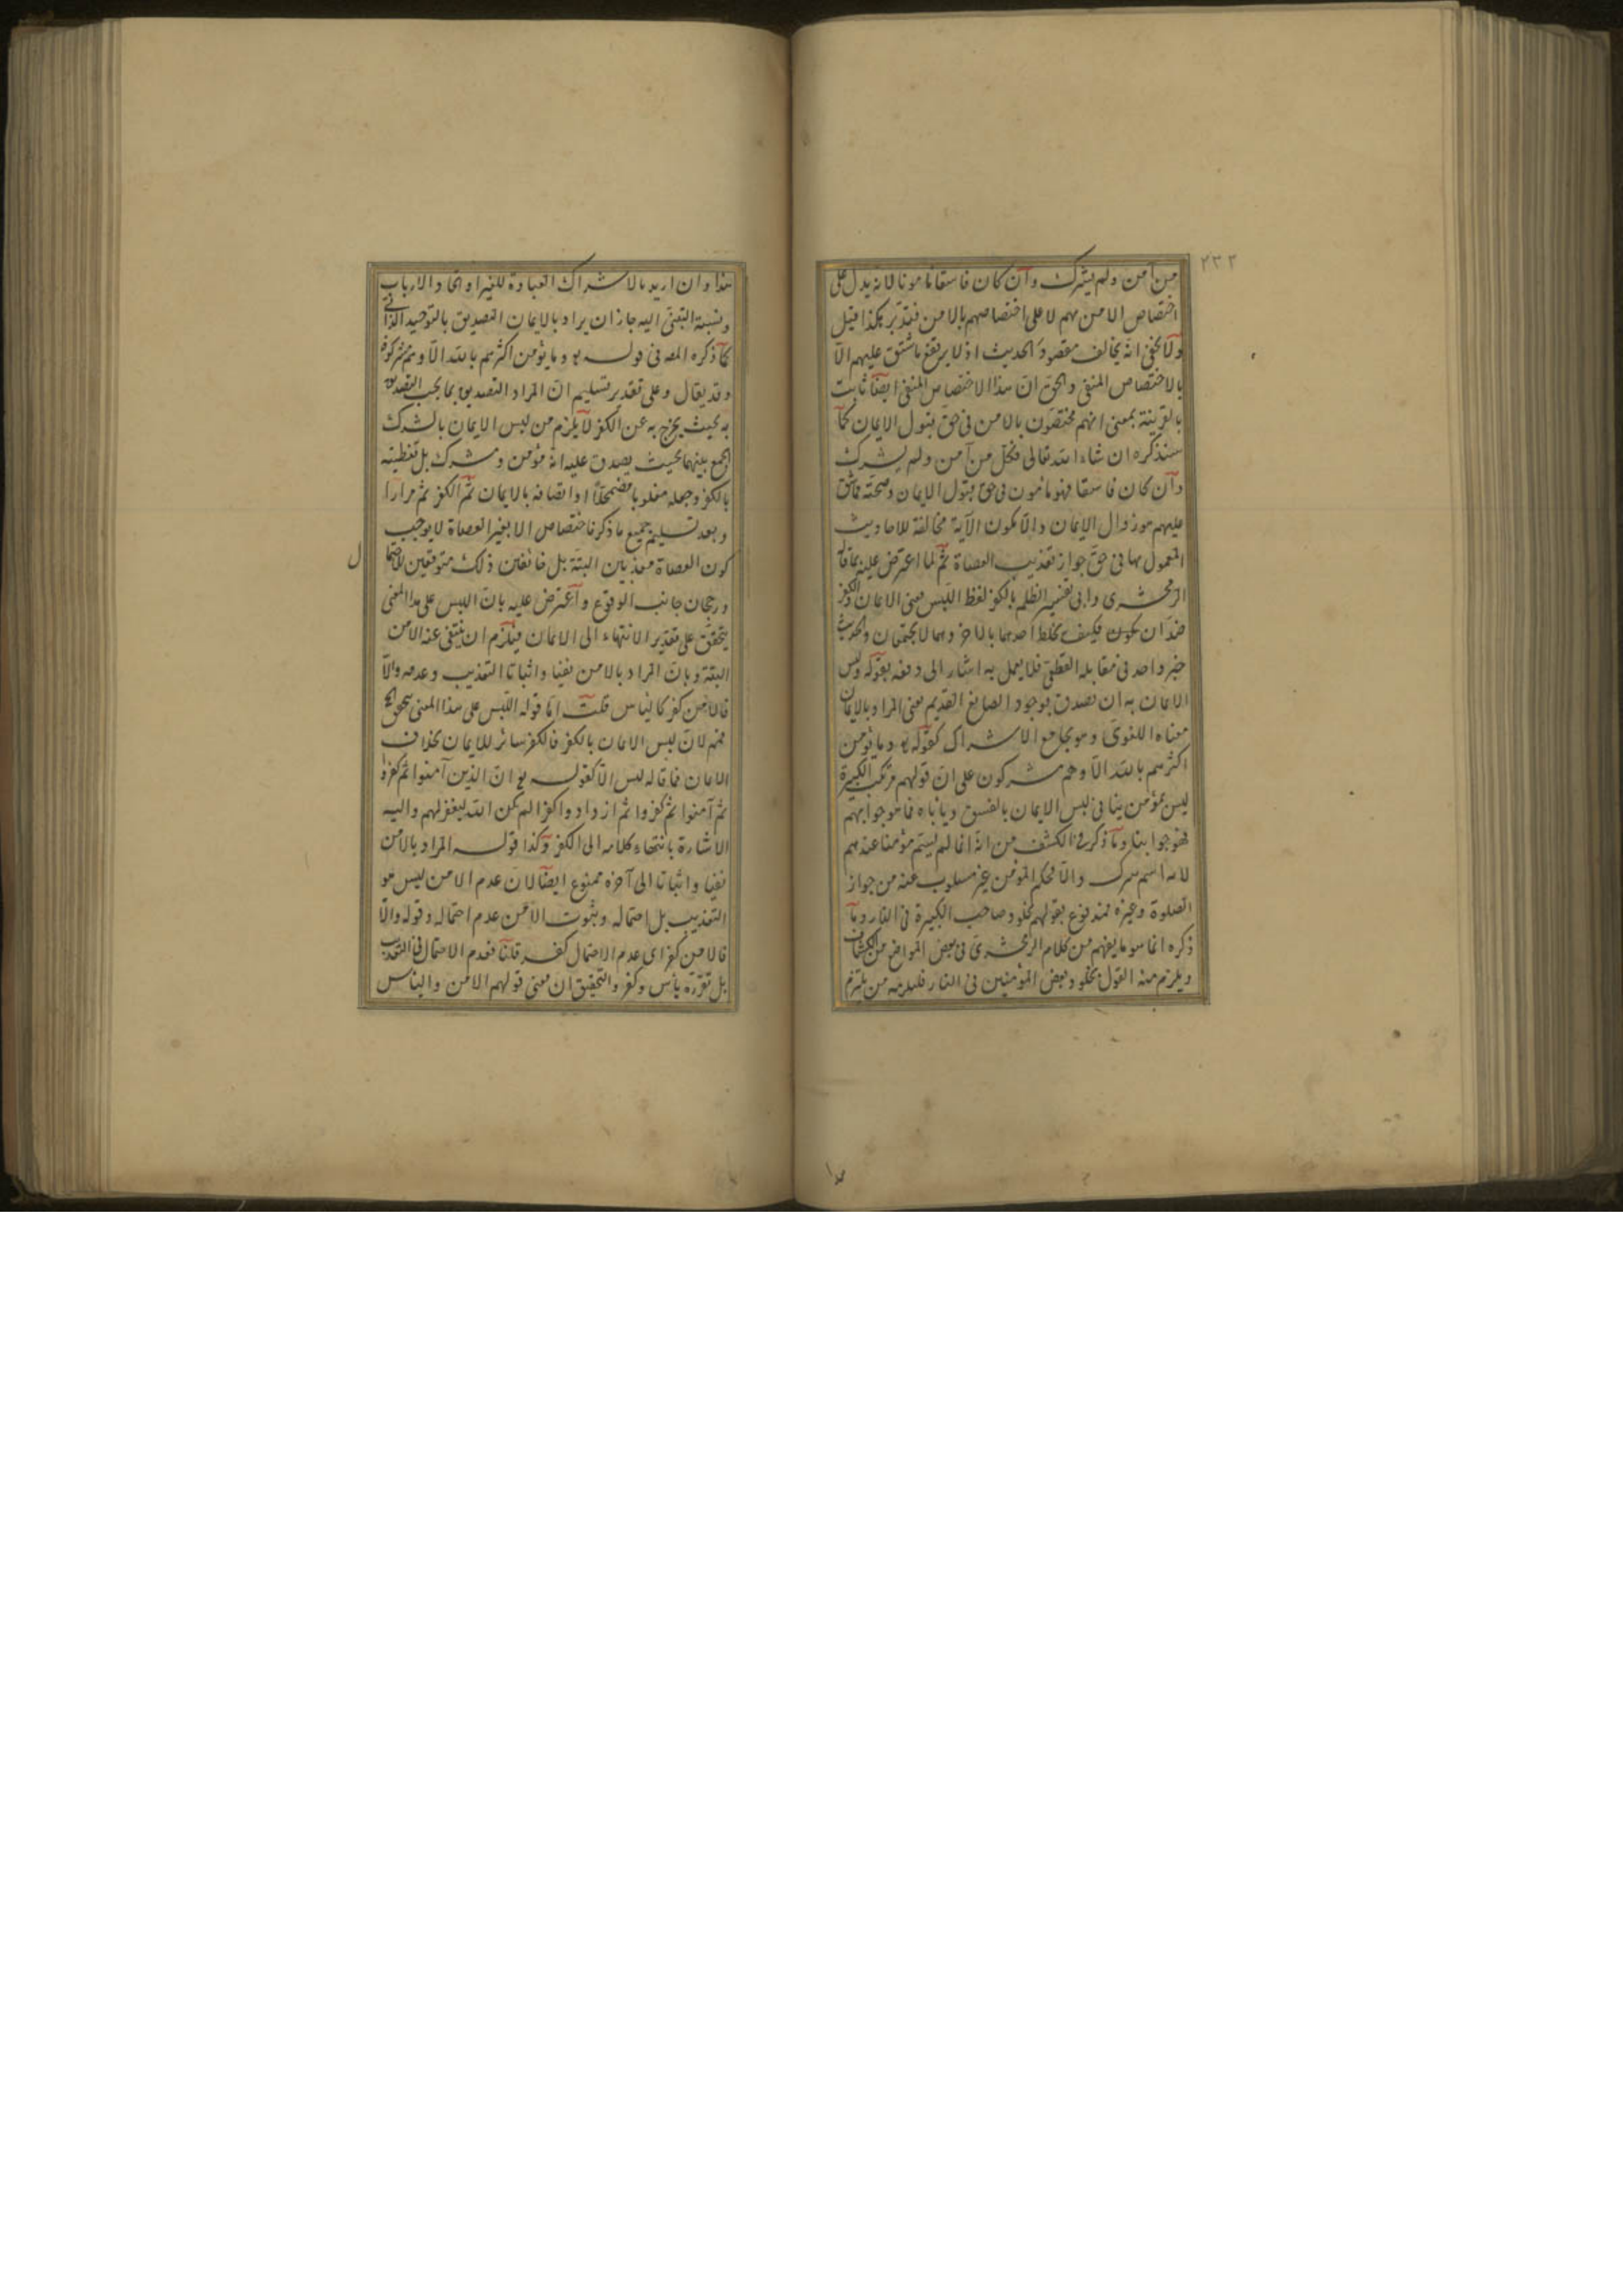 ٢٣٢
من آمن ولم يشرك وان كان فاسقا مأمونا لانه يدل على
اختصاص الامن بهم لا على اختصاصهم بالامن فتدبر هكذا قيل
ولا يخفى انه يخالف مقصود الحديث اذ لا يرتفع ما شق عليهم الا
بالاختصاص المنفى والحق ان هذا الاختصاص المنفى ايضا ثابت
بالقرينة بمعنى انهم مختصون بالامن فى حق قبول الايمان كما
سنذكره ان شاء الله تعالى فكل من آمن ولم يشرك
وان كان فاسقا فهو مأمون فى حق قبول الايمان وصحته فما شق
عليهم هو زوال الايمان والا يكون الآية مخالفة للاحاديث
المعمول بها فى حق جواز تعذيب العصاة ثم لما اعترض عليه بما قاله
الزمخشرى وابى تفسير الظلم بالكفر لفظ اللبس فهى الايمان والكفر
ضدان فكيف يخلط احدهما بالاخر وهما لا يجتمعان والحديث
خبر واحد فى مقابلة القطعى فلا يعمل به اشار الى دفعه بقوله ولبس
الايمان به ان تصدق بوجود الصانع القديم يعنى المراد بالايمان
معناه اللغوى وهو يجامع الاشراك كقوله تع وما يؤمن
اكثرهم بالله الا وهم مشركون على ان قولهم مرتكب الكبيرة
ليس بمؤمن ينافى لبس الايمان بالفسق ويأباه فما هو جوابهم
فهو جوابنا وما ذكر فى الكشف من انه انما لم يسم مؤمنا عندهم
لانه اسم شرف والا فحكم المؤمن غير مسلوب عنه من جواز
الصلوة وغيره فمندفع بقولهم بخلود صاحب الكبيرة فى النار وما
ذكره انما هو ما يفهم من كلام الزمخشرى فى بعض المواضع من الكشاف
ويلزم منه القول بخلود بعض المؤمنين فى النار فليلزمه من يلتزم
هذا وان اريد بالاشراك العبادة للغير او اتخاذ الارباب
ونسبة التعنى اليه جاز ان يراد بالايمان التصديق بالتوحيد الذاتى
كما ذكره المصـ فى قوله تع وما يؤمن اكثرهم بالله الا وهم مشركون
وقد يقال وعلى تقدير تسليم ان المراد التصديق بما يجب التصديق
به بحيث يخرج به عن الكفر لا يلزم من لبس الايمان بالشرك
الجمع بينهما بحيث يصدق عليه انه مؤمن ومشرك بل تغطيته
بالكفر وجعله مغلوبا مضمحلا او اتصافه بالايمان ثم الكفر ثم مرارا
وبعد تسليم جميع ما ذكر فاختصاص الامن بغير العصاة لا يوجب
كون العصاة معذبين البتة بل خائفين ذلك متوقعين للاحتما
ل
ورجحان جانب الوقوع واعترض عليه بان اللبس على هذا المعنى
يتحقق على تقدير الانتهاء الى الايمان فيلزم ان ينتفى عنه الامن
البتة وبان المراد بالامن نفيا واثباتا التعذيب وعدمه والا
فالامن كفر كالياس قلت اما قوله اللبس على هذا المعنى يتحقق الخ
فمنع لان لبس الايمان بالكفر فالكفر ساتر للايمان بخلاف
الايمان فما قاله ليس الا كقوله تع ان الذين آمنوا ثم كفروا
ثم آمنوا ثم كفروا ثم ازدادوا كفرا لم يكن الله ليغفر لهم واليه
الاشارة بانتهاء كلامه الى الكفر وكذا قوله المراد بالامن
نفيا واثباتا الى آخره ممنوع ايضا لان عدم الامن ليس هو
التعذيب بل احتماله وثبوت الامن عدم احتماله وقوله والا
فالامن كفر اى عدم الاحتمال كفر قلنا فعدم الاحتمال فى التعذيب
بل تقرره يأس وكفر والتحقيق ان معنى قولهم الامن والياس